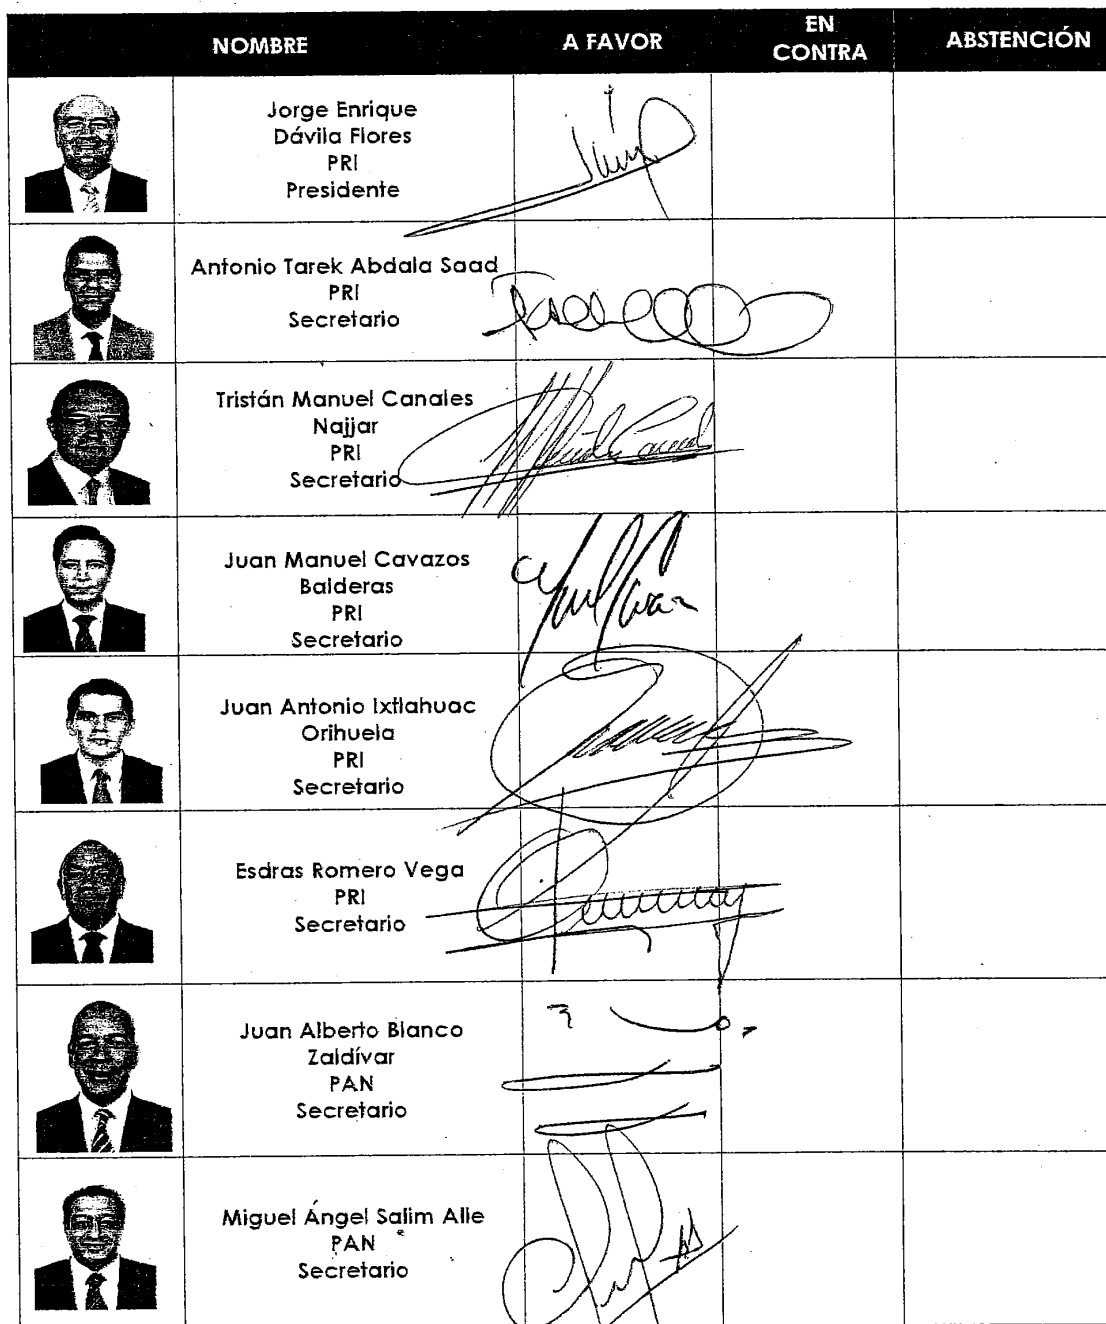 NOMBRE A FAVOR EN CONTRA ABSTENCIÓN
Jorge Enrique
Dávila Flores
PRI
Presidente
Antonio Tarek Abdala Saad
PRI
Secretario
Tristán Manuel Canales
Najjar
PRI
Secretario
Juan Manuel Cavazos
Balderas
PRI
Secretario
Juan Antonio Ixtlahuac
Orihuela
PRI
Secretario
Esdras Romero Vega
PRI
Secretario
Juan Alberto Blanco
Zaldívar
PAN
Secretario
Miguel Ángel Salim Alle
PAN
Secretario